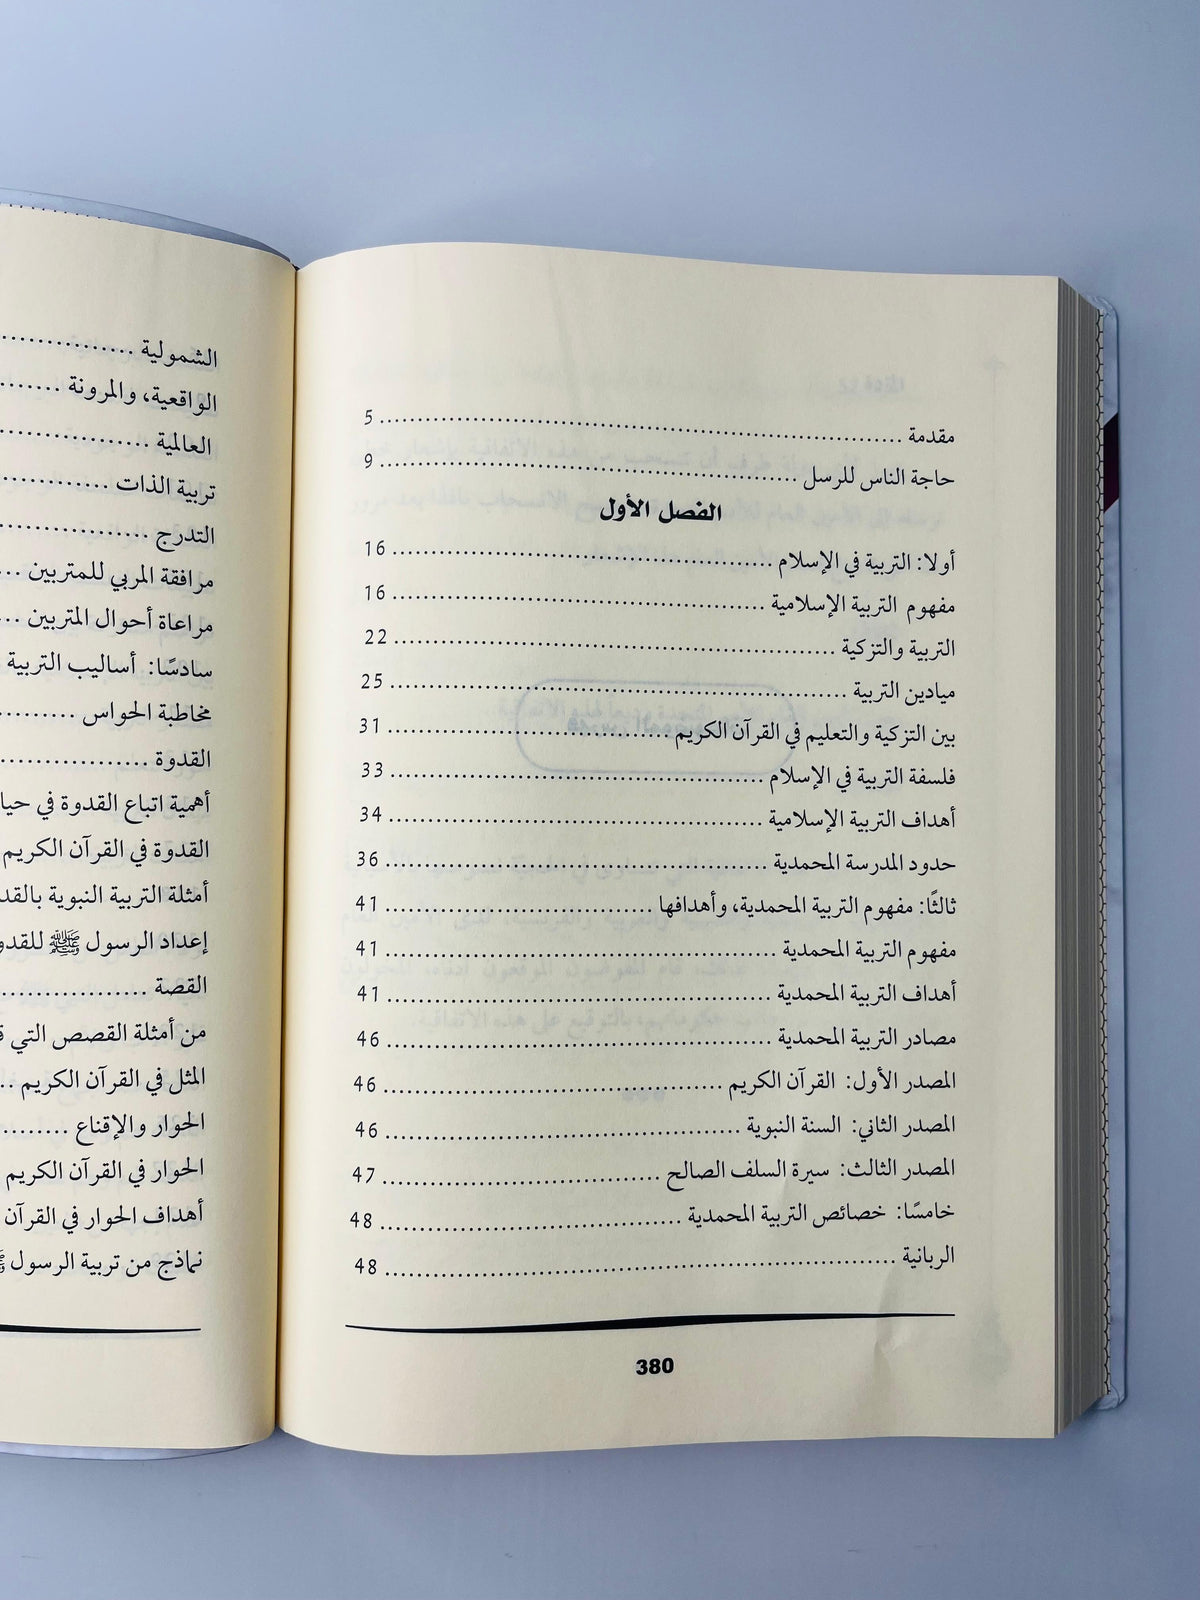 مقدمة ........ 5
حاجة الناس للرسل ........ 9
الفصل الأول
أولا: التربية في الإسلام ........ 16
مفهوم التربية الإسلامية ........ 16
التربية والتزكية ........ 22
ميادين التربية ........ 25
بين التزكية والتعليم في القرآن الكريم ........ 31
فلسفة التربية في الإسلام ........ 33
أهداف التربية الإسلامية ........ 34
حدود المدرسة المحمدية ........ 36
ثالثًا: مفهوم التربية المحمدية، وأهدافها ........ 41
مفهوم التربية المحمدية ........ 41
أهداف التربية المحمدية ........ 41
مصادر التربية المحمدية ........ 46
المصدر الأول: القرآن الكريم ........ 46
المصدر الثاني: السنة النبوية ........ 46
المصدر الثالث: سيرة السلف الصالح ........ 47
خامسًا: خصائص التربية المحمدية ........ 48
الربانية ........ 48
380
الشمولية ........
الواقعية، والمرونة ........
العالمية ........
تربية الذات ........
التدرج ........
مرافقة المربي للمتربين ...
مراعاة أحوال المتربين ...
سادسًا: أساليب التربية
مخاطبة الحواس ........
القدوة ........
أهمية اتباع القدوة في
القدوة في القرآن الكريم
أمثلة التربية النبوية
إعداد الرسول ﷺ
القصة ........
من أمثلة القصص التي
المثل في القرآن الكريم ..
الحوار والإقناع ........
الحوار في القرآن الكريم
أهداف الحوار في القرآن
نماذج من تربية الرسول